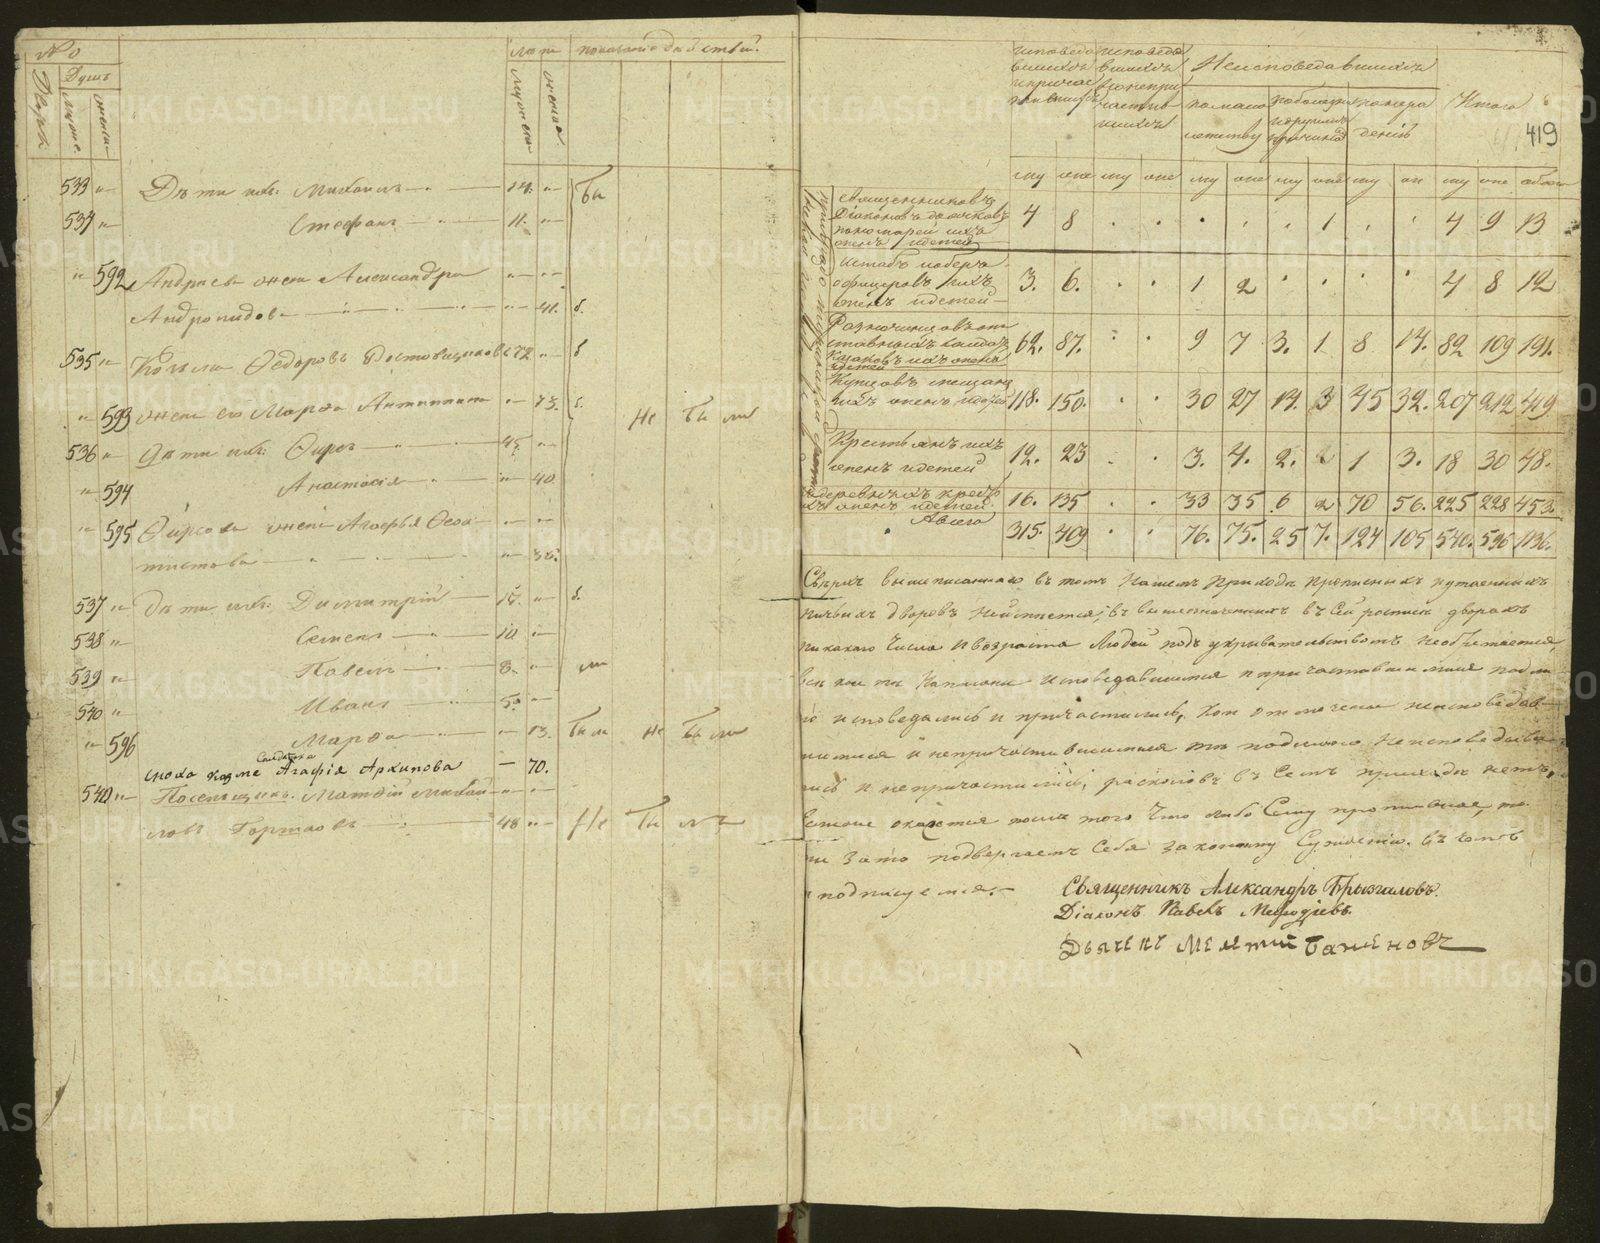 №
Дворы
Душъ
мужс.
женск.
лета
мужеска
женска
показанiе действiй.
533 " Дѣти ихъ: Михаилъ 14. "
Бы
534 " Стефанъ 11. "
" 592 Андреева жена Александра " "
Андронидова " 41. б.
535 " Козьма Ѳедоровъ Ростовщиковъ 72 " б
" 593 жена его Марѳа Антипина " 73. б.
Не Бы ли
536 " Дѣти ихъ: Ѳирсъ 45 "
" 594 Анастасiя " 40
" 595 Ѳирсова жена Агафья Ѳеок- " "
тистова " 38.
537 " дѣти ихъ: Димитрiй 15. " б.
538 " Семенъ 10 "
539 " Павелъ 8. " ли
540 " Иванъ 5. "
" 596 Марѳа " 13. Были Не Были
Солдатка
сноха козме Агафiя Архипова — 70.
542 " Поселщикъ Матвѣй Михай- " "
ловъ Гортаовъ 48 " Не Бы лъ
419
Исповедавшихся и причастившихся
Исповедавшихся и непричастившихся
Неисповедавшихся
помалолетству
поболезни и другимъ причинамъ
понерадению
Итого
му жен му жен му жен му жен му жен му жен обоих
священниковъ
Дiаконовъ дьячковъ
пономарей ихъ
женъ и детей 4 8 · · · · · 1 · · 4 9 13
штабъ и оберъ
офицеровъ ихъ
женъ и детей 3. 6. · · 1 2 · · · · 4 8 12
Разночинцовъ от
ставныхъ солдатъ
Казаковъ ихъ женъ
и детей 62. 87. · · 9 7 3. 1 8 14. 82 109 191.
Купцовъ мещанъ
ихъ женъ и детей 118. 150. · · 30 27 14. 3 45 32. 207 212 419
Крестьянъ ихъ
женъ и детей 12. 23 · · 3. 4. 2. 1 3. 18 30 48.
деревныхъ крестьянъ
ихъ женъ и детей 16. 135 · · 33 35 6 2 70 56. 225 228 453.
Авсего 315. 409 · · 76. 75. 25 7. 124 105 540. 596 1136.
Сверхъ вышеписаннаго въ томъ нашемъ приходѣ прописныхъ и утаенныхъ
ничьихъ дворовъ неимеется; въ вышеозначенныхъ въ сей росписи дворахъ
никакаго числа и возраста людей подъ укрывательствомъ необретается,
всѣ кои те написаны исповедавшимися и причастившимися подлин
но исповедались и причастились, кои отмечены неисповедав
шимися и непричастившимися те подлинно неисповедыва
лись и непричастились, расколовъ въ семъ приходѣ нетъ,
Естьли окажется после того что либо сему противное, то
мы зато подвергаемъ себя законному сужденiю. въ чемъ
и подписуемся.
Священникъ Александръ Брызгаловъ.
Дiаконъ Павелъ Меѳодiевъ.
Дьячекъ Мелетiй Баженовъ
METRIKI.GASO-URAL.RU